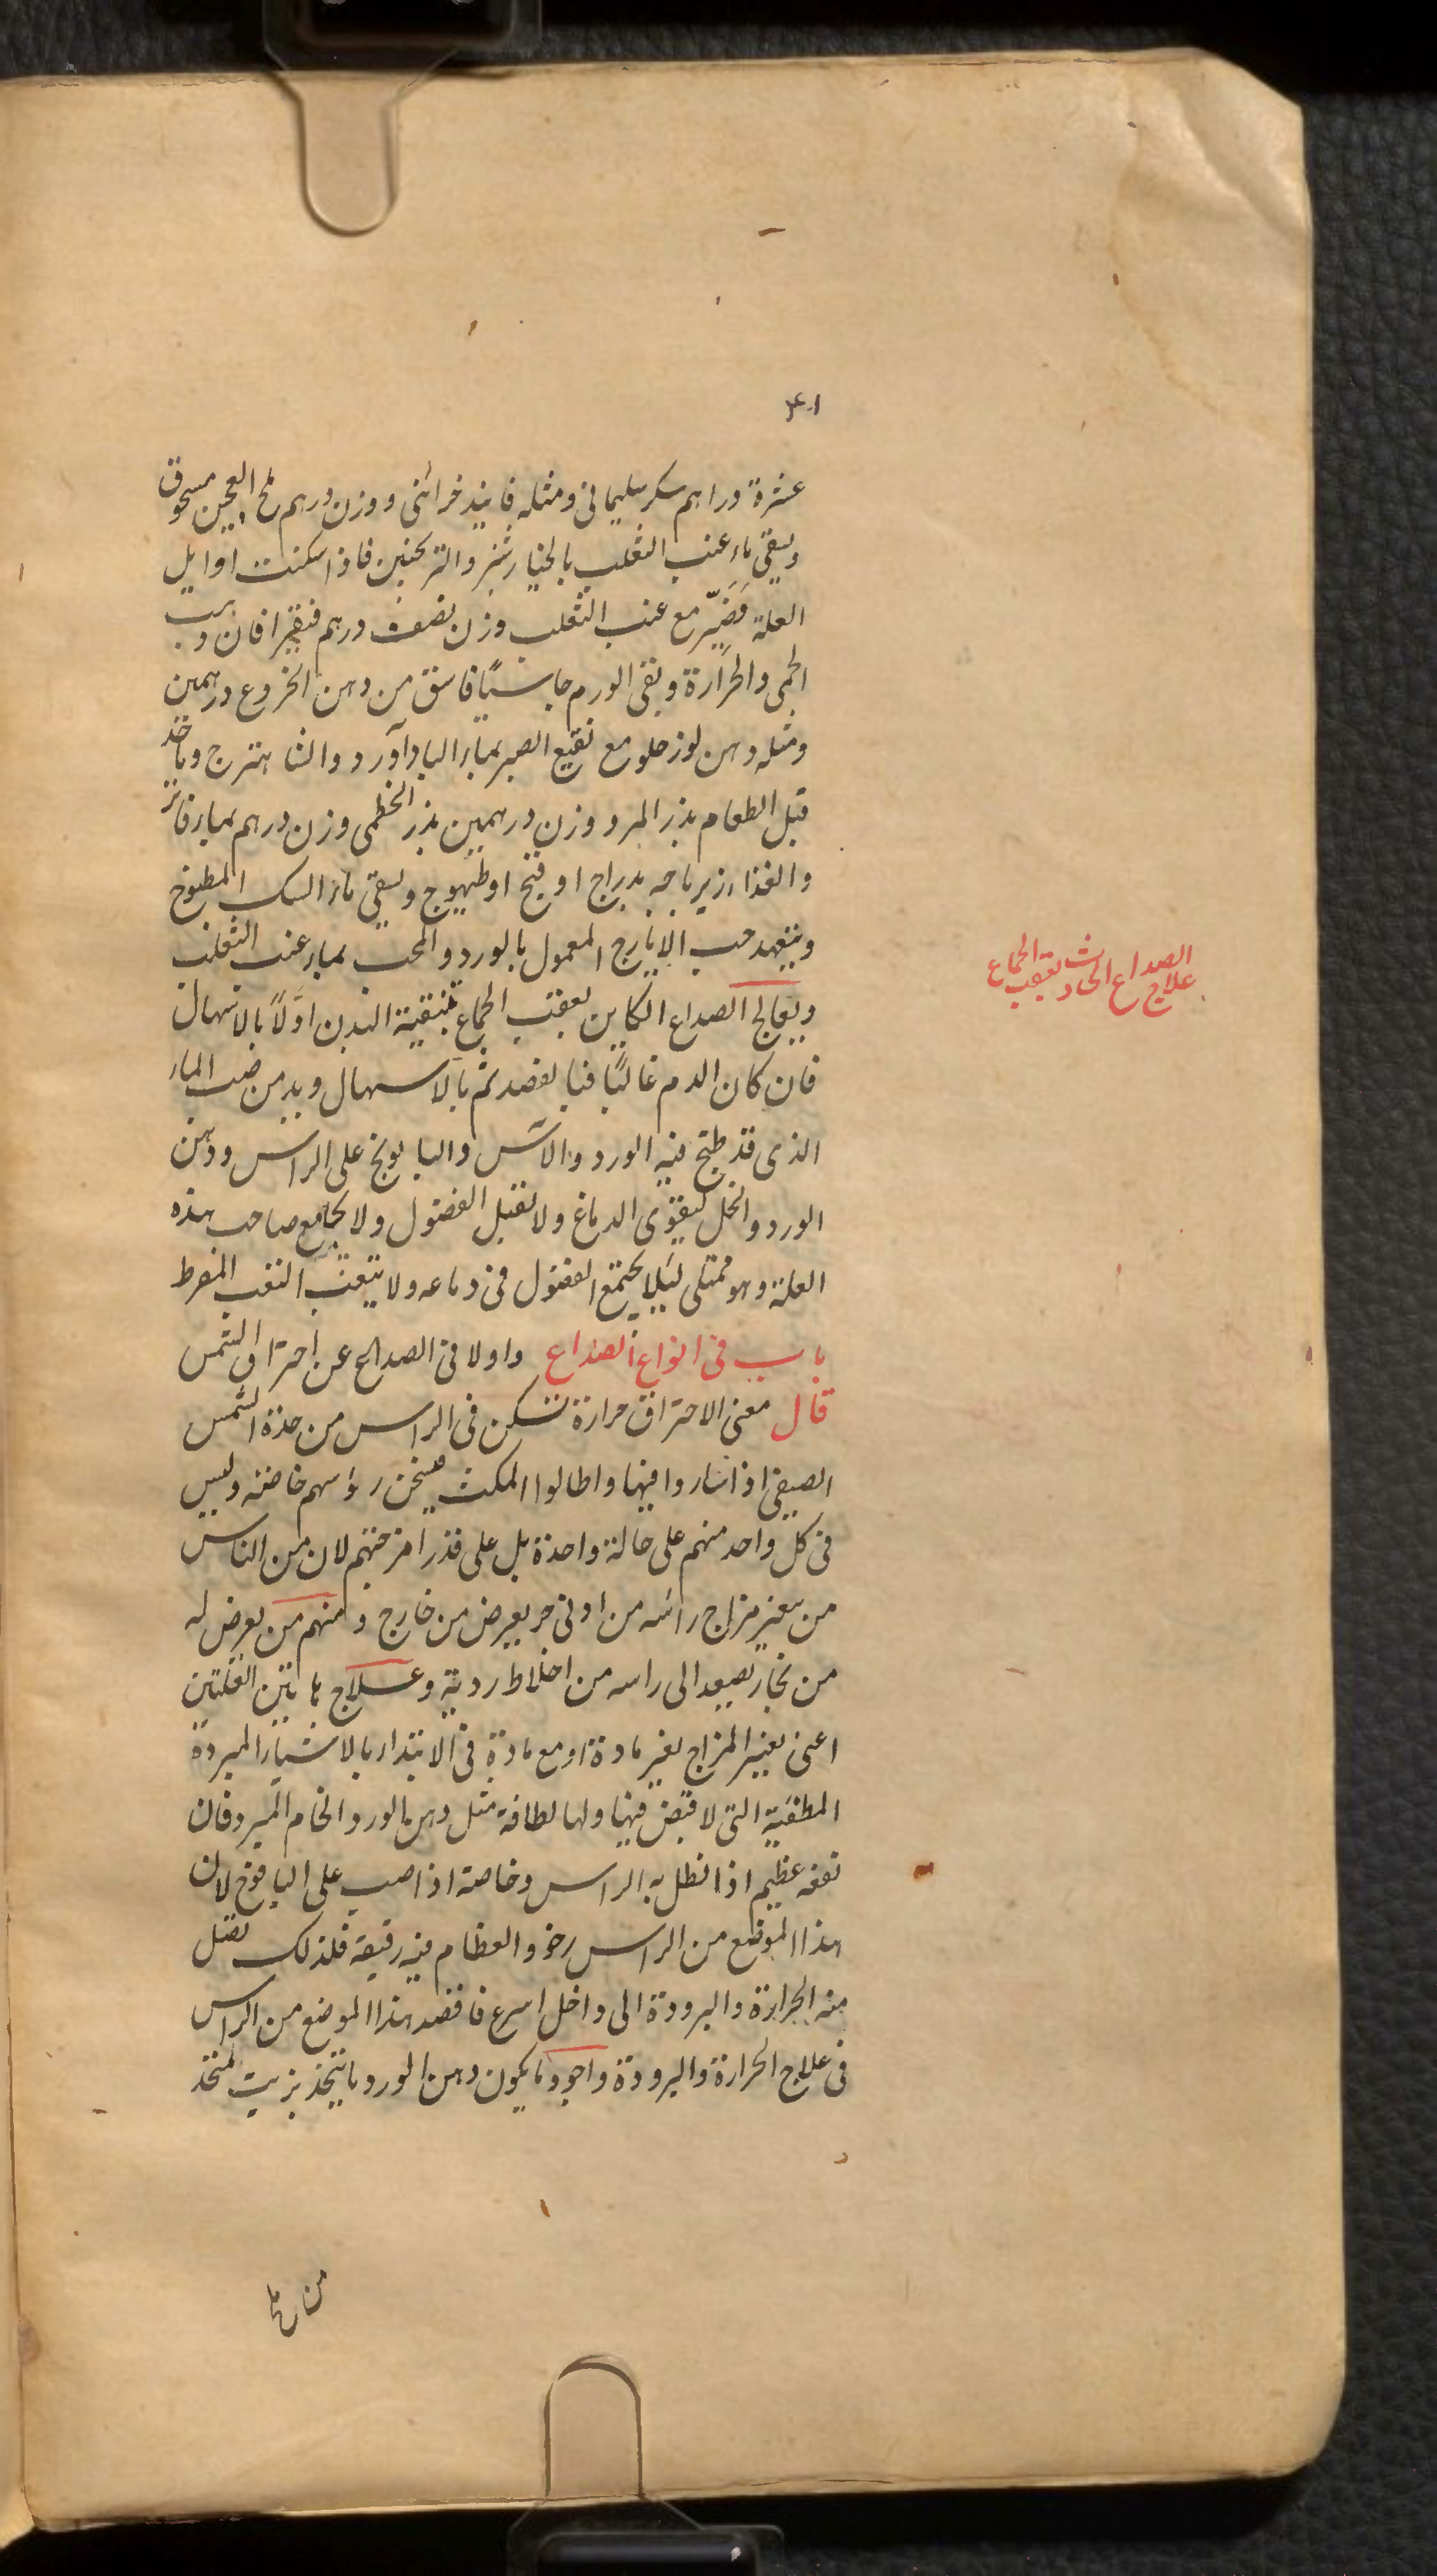 ٤٠١
عشرة دراهم سكر سليماني ومثله فانيذ خزائني ووزن درهم ملح العجين مسحوق
ويسقى ماء عنب الثعلب بالخيار شنبر والترنجبين فاذا سكنت اوايل
العلة فصير مع عنب الثعلب وزن نصف درهم فيقرا فان ذهبت
الحمى والحرارة وبقى الورم جاسيًا فاسق من دهن الخروع درهمين
ومثله دهن لوز حلو مع نقيع الصبر بماء الباداورد والشاهترج وياخذ
قبل الطعام بزر المرو وزن درهمين بزر الخطمى وزن درهم بماء فاتر
والغذاء زيرباجه بدراج او قبج او طيهوج ويسقى ماء السك المطبوخ
ويتعهد حب الايارج المعمول بالورد والمحب بماء عنب الثعلب
ويعالج الصداع الكاين بعقب الجماع بتنقية البدن اولًا بالاسهال
فان كان الدم غالبًا فبالفصد ثم بالاسهال ويدمن صب الماء
الذى قد طبخ فيه الورد والاس والبابونج على الراس ودهن
الورد والخل ليقوى الدماغ ولا تقبل الفضول ولا يجامع صاحب هذه
العلة وهو ممتلى ليلا يجتمع الفضول فى دماغه ولا يتعب التعب المفرط
باب فى انواع الصداع واولا فى الصداع عن احتراق الشمس
قال معنى الاحتراق حرارة تسكن فى الراس من حدة الشمس
الصيفى اذا ساروا فيها واطالوا المكث فيسخن رؤسهم خاصة وليس
فى كل واحد منهم على حالة واحدة بل على قدر امزجتهم لان من الناس
من يتغير مزاج راسه من ادنى حر يعرض من خارج ومنهم من يعرض له
من بخار يصعد الى راسه من اخلاط ردية وعلاج هاتين العلتين
اعنى تغيير المزاج بغير مادة او مع مادة فى الابتداء بالاشياء المبردة
المطفية التى لا قبض فيها ولها لطافة مثل دهن الورد الخام المبرد فان
نفعه عظيم اذا نطل به الراس وخاصة اذا صب على اليافوخ لان
هذا الموضع من الراس رخو والعظام فيه رقيقة فلذلك تصل
منه الحرارة والبرودة الى داخل اسرع فاقصد هذا الموضع من الراس
فى علاج الحرارة والبرودة واجود ما يكون دهن الورد ما يتخذ بزيت المتخذ
علاج الصداع الحادث بعقب الجماع